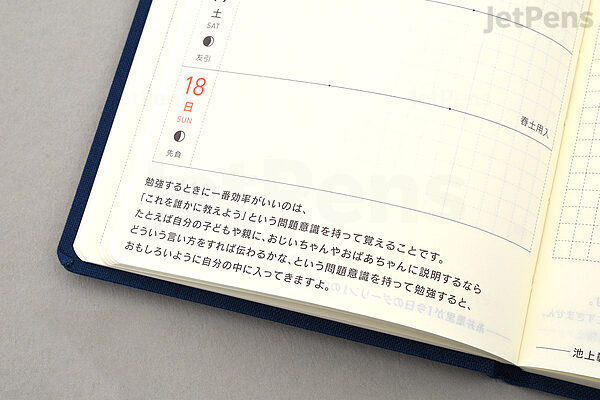 JetPens
土
SAT
友引
18
日
SUN
先負
春土用入
勉強するときに一番効率がいいのは、
「これを誰かに教えよう」という問題意識を持って覚えることです。
たとえば自分の子どもや親に、おじいちゃんやおばあちゃんに説明するなら
どういう言い方をすれば伝わるかな、という問題意識を持って勉強すると、
おもしろいように自分の中に入ってきますよ。
池上